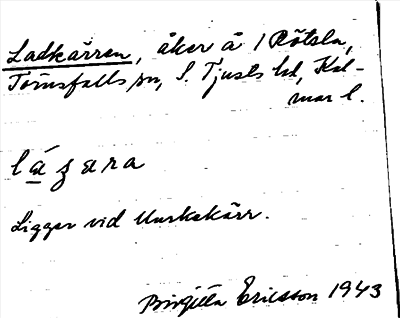 Ladkärren, åker å 1 Rötsla,
Törnsfalls sn, S. Tjusts hd, Kal-
mar l.
Ligger vid Murkekärr.
Birgitta Ericsson 1943